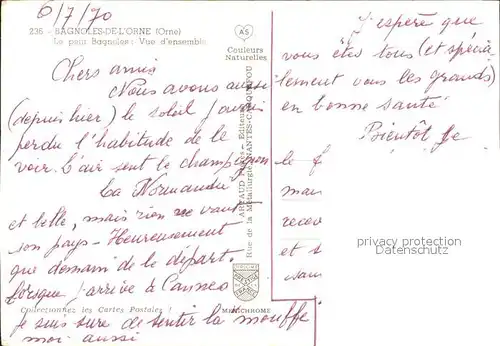 6/7/70
236 - BAGNOLES-DE-L'ORNE (Orne)
Le pont Bagnoles : Vue d'ensemble
AS
Couleurs
Naturelles
Chers amis
Nous avons aussi
(depuis hier) le soleil j'avais
perdu l'habitude de le
voir. L'air sent le champignon
La Normandie
est belle, mais rien ne vaut
son pays - Heureusement
que demain de le départ.
Lorsque j'arrive à Cannes
je suis sure de sentir la mouffe
moi aussi
Collectionnez les Cartes Postales !
ARTAUD Frères - Editeurs
Rue de la Métallurgie - NANTES-CARQUEFOU
MEXICHROME
J'espère que
vous êtes tous (et spécia-
lement vous les grands)
en bonne santé
Bientôt je
le f
man
recev
et s
sau
privacy protection
Datenschutz